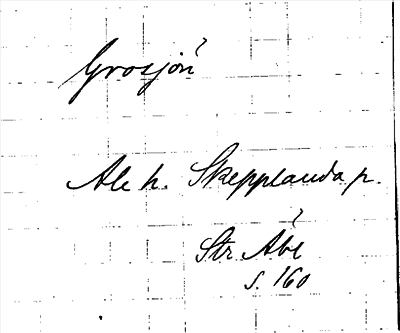 Grosjön
Ale h. Skepplanda p.
Str Åbl
s. 160